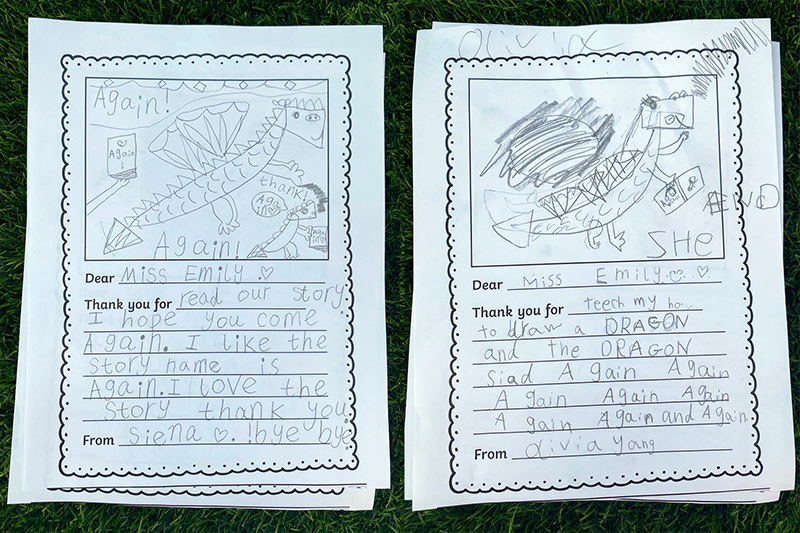 Again!
Again
thank
Aga
in!
Again!
Dear Miss Emily
Thank you for read our story.
I hope you come
Again. I like the
story name is
Again. I love the
story thank you
From Siena . !bye bye
Olivia
END
SHE
Dear Miss Emily.
Thank you for teech my how
to draw a DRAGON
and the DRAGON
Siad Again Again
Again Again Again
Again Again and Again.
From Olivia Yang